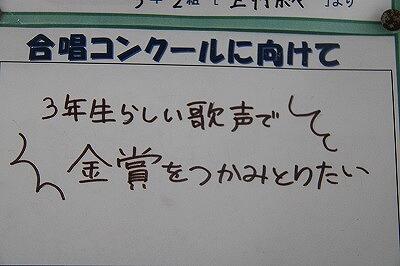 合唱コンクールに向けて
3年生らしい歌声で
金賞をつかみとりたい